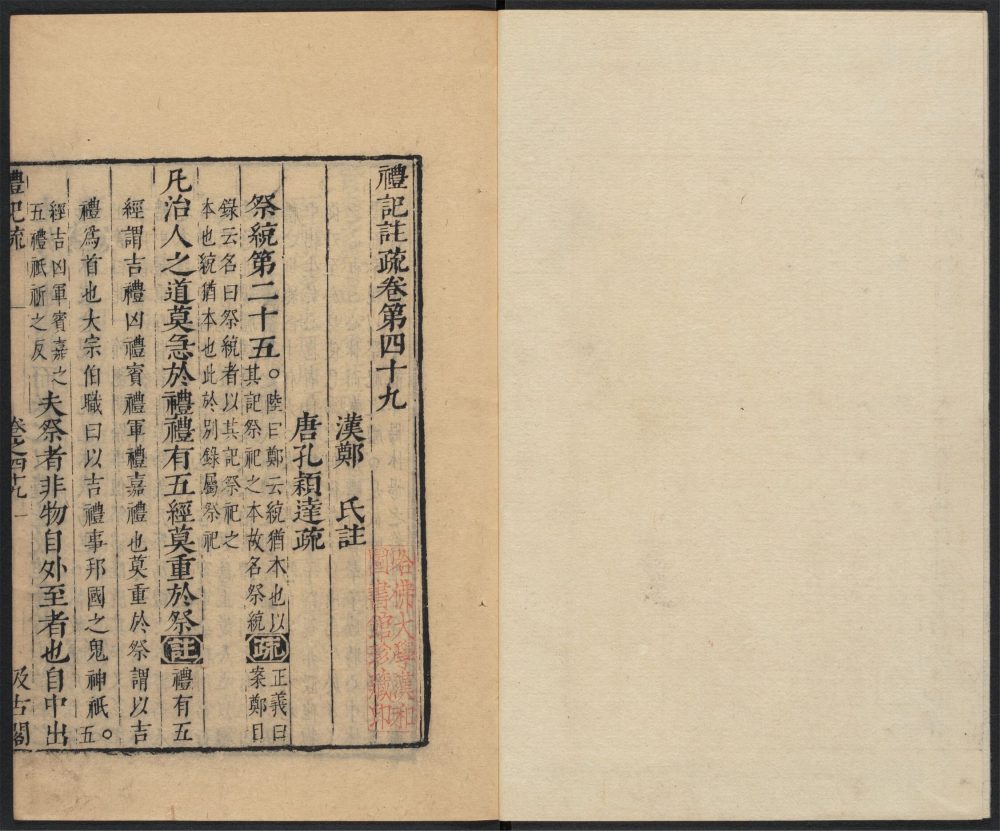 禮記註疏卷第四十九
漢鄭 氏註
唐孔穎達疏
祭統第二十五。陸曰鄭云統猶本也以
其記祭祀之本故名祭統
疏
正義曰
案鄭目
錄云名曰祭統者以其記祭祀之
本也統猶本也此於別錄屬祭祀
凡治人之道莫急於禮禮有五經莫重於祭註禮有五
經謂吉禮凶禮賓禮軍禮嘉禮也莫重於祭謂以吉
禮爲首也大宗伯職曰以吉禮事邦國之鬼神祇。五
經吉凶軍賓嘉之
五禮祇祈之反
夫祭者非物自外至者也自中出
禮記疏
卷之四十九
一
汲古閣
哈佛大學漢和
圖書館珍藏印